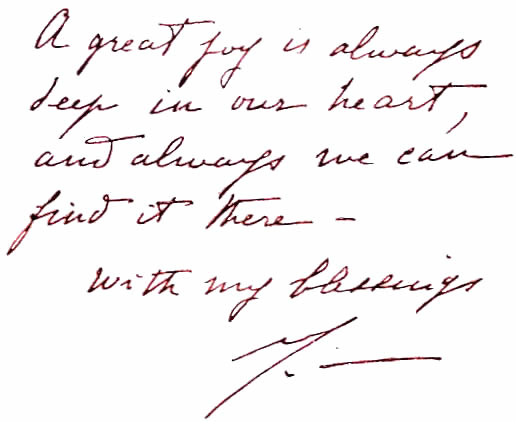 A great joy is always
deep in our heart,
and always we can
find it there –
with my blessings